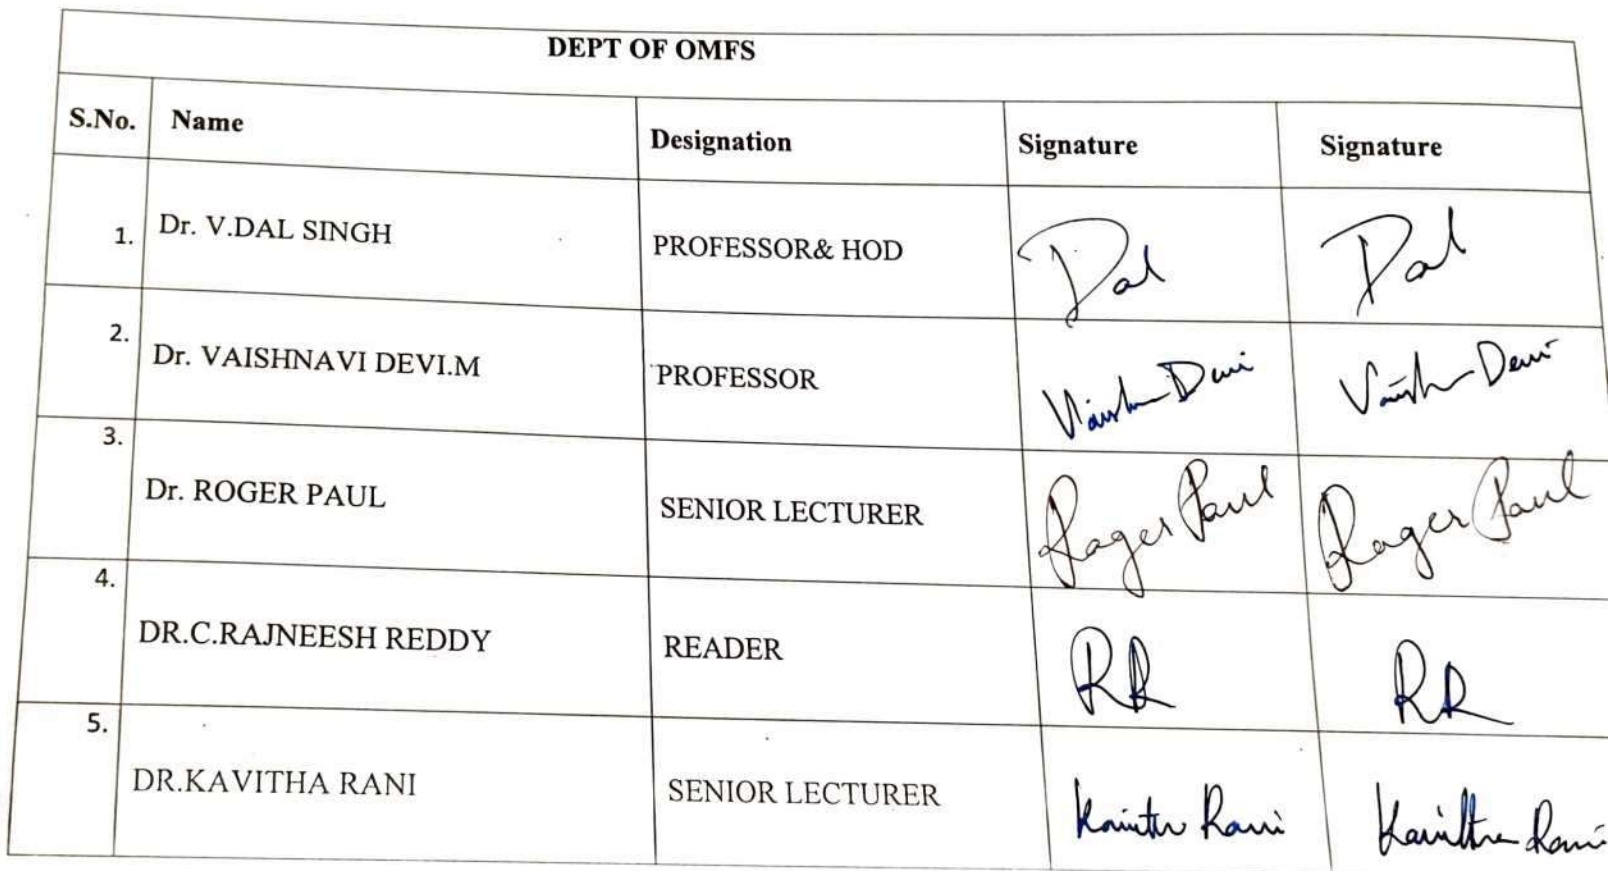 DEPT OF OMFS
S.No. Name Designation Signature Signature
1. Dr. V.DAL SINGH PROFESSOR& HOD Dal Dal
2. Dr. VAISHNAVI DEVI.M PROFESSOR Devi Devi
3. Dr. ROGER PAUL SENIOR LECTURER Roger Paul Roger Paul
4. DR.C.RAJNEESH REDDY READER RR RR
5. DR.KAVITHA RANI SENIOR LECTURER Kavitha Rani Kavitha Rani